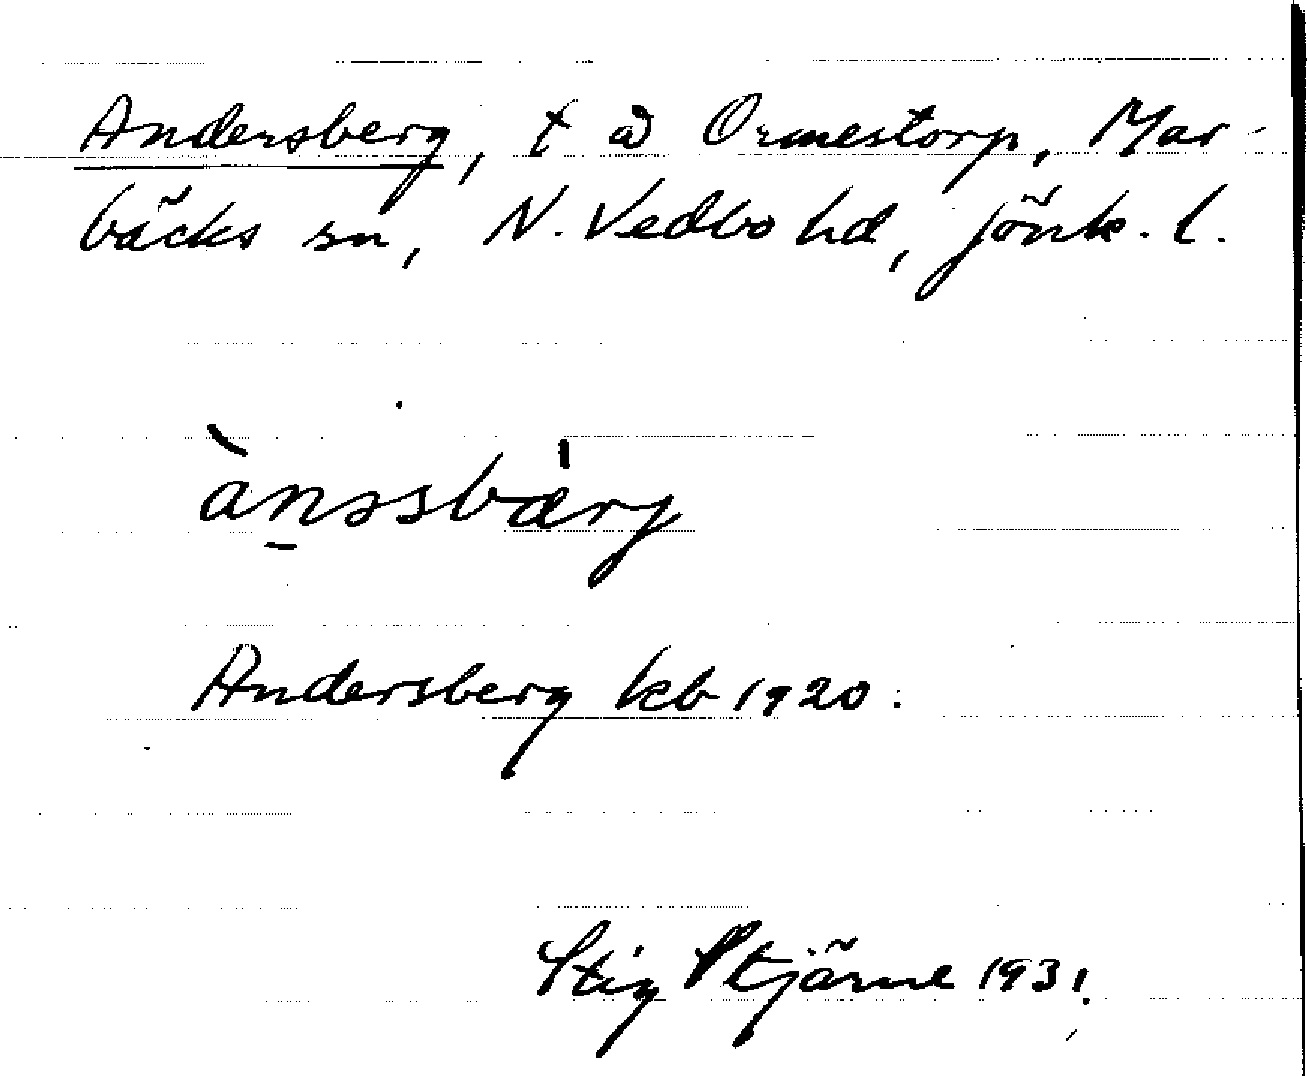 Andersberg, t å Ormestorp, Mar-
bäcks sn, N. Vedbo hd, Jönk. l.
ànssbærj
Andersberg kb 1920.
Stig Stjärne 1931.